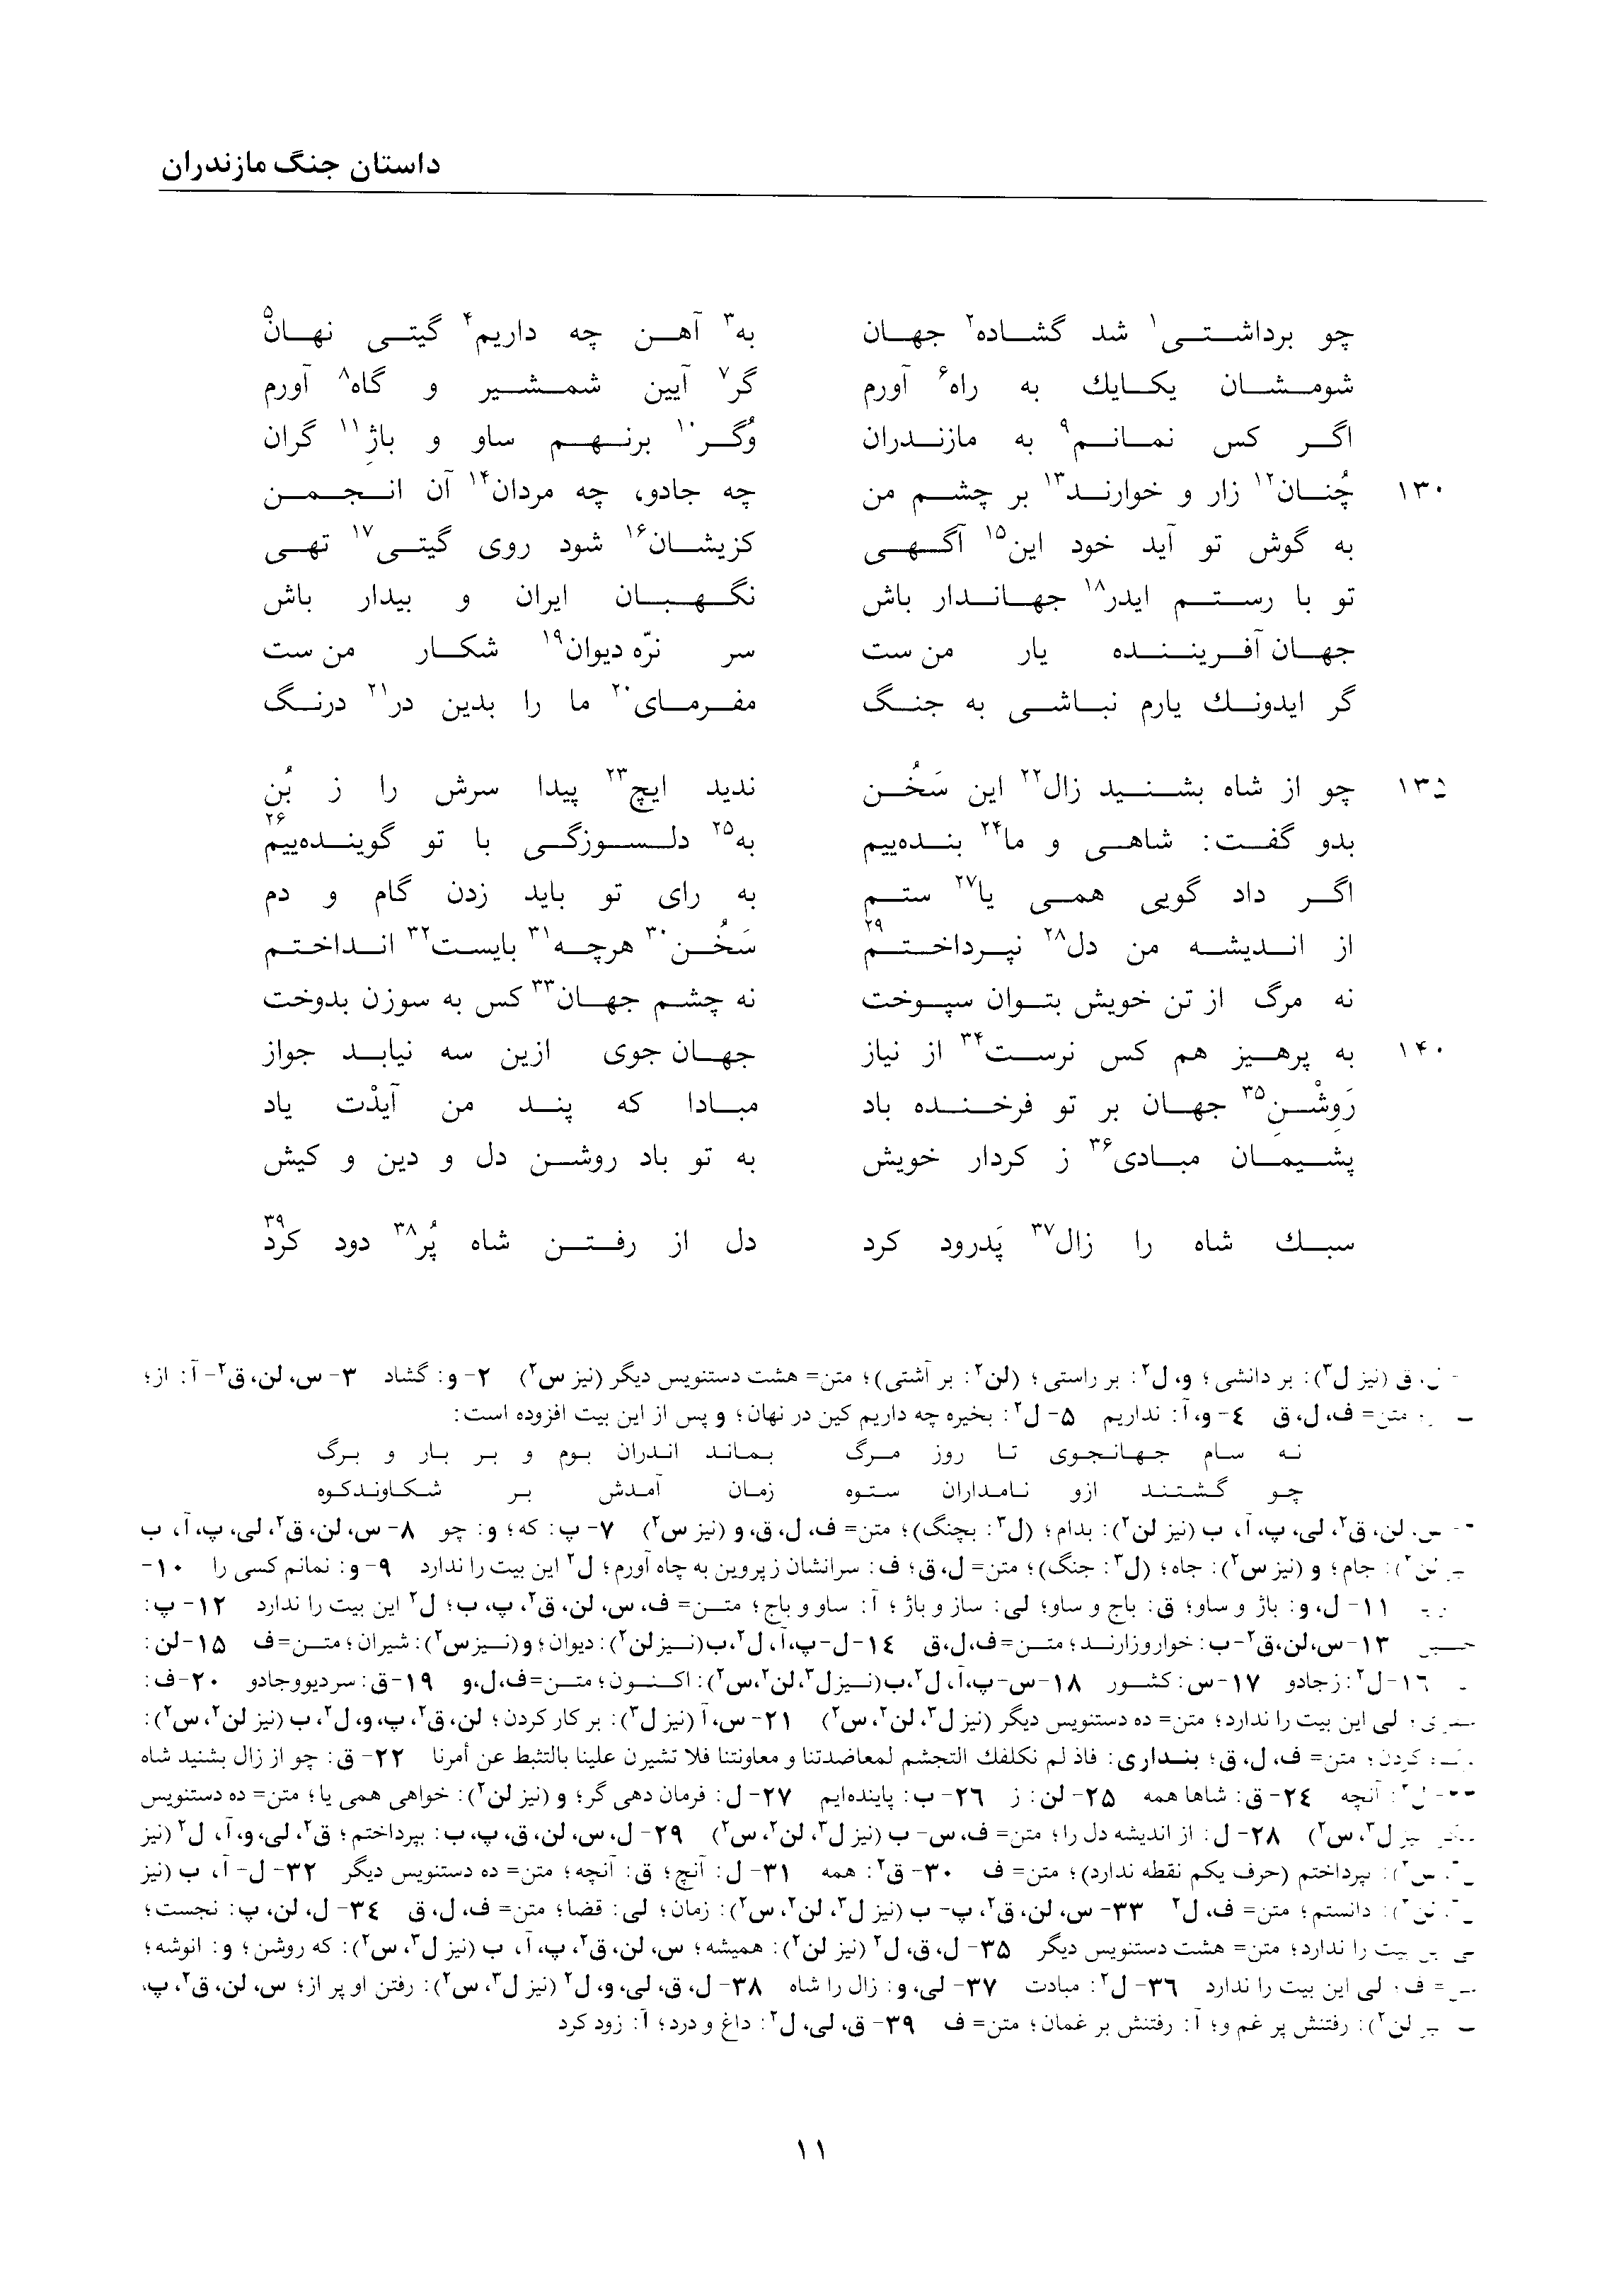 داستان جنگ مازندران
چو برداشتی۱ شد گشاده۲ جهان به۳ آهن چه داریم۴ گیتی نهان۵
شومشان یکایك به راه۶ آورم گر۷ آیین شمشیر و گاه۸ آورم
اگر کس نمانم۹ به مازندران وُگر۱۰ برنهم ساو و باژِ۱۱ گران
۱۳۰ چُنان۱۲ زار و خوارند۱۳ بر چشم من چه جادو، چه مردان۱۴ آن انجمن
به گوش تو آید خود این۱۵ آگهی کزیشان۱۶ شود روی گیتی۱۷ تهی
تو با رستم ایدر۱۸ جهاندار باش نگهبان ایران و بیدار باش
جهان‌آفریننده یار من‌ست سر نرّه دیوان۱۹ شکار من‌ست
گر ایدونك یارم نباشی به جنگ مفرمای۲۰ ما را بدین در۲۱ درنگ
۱۳۵ چو از شاه بشنید زال۲۲ این سَخُن ندید ایچ۲۳ پیدا سرش را ز بُن
بدو گفت: شاهی و ما۲۴ بنده‌ییم به۲۵ دلسوزگی با تو گوینده‌ییم۲۶
اگر داد گویی همی یا۲۷ ستم به رای تو باید زدن گام و دم
از اندیشه من دل۲۸ نپرداختم۲۹ سَخُن۳۰ هرچه۳۱ بایست۳۲ انداختم
نه مرگ از تن خویش بتوان سپوخت نه چشم جهان۳۳ کس به سوزن بدوخت
۱۴۰ به پرهیز هم کس نرست۳۴ از نیاز جهان‌جوی ازین سه نیابد جواز
رَوِشْنِ۳۵ جهان بر تو فرخنده باد مبادا که پند من آیذْت یاد
پشیمان مبادی۳۶ ز کردار خویش به تو باد روشن دل و دین و کیش
سبك شاه را زال۳۷ پَدرود کرد دل از رفتن شاه پُر۳۸ دود کرد۳۹
ل، ق (نیز ل۳): بر دانشی؛ و، ل۲: بر راستی؛ (لن۲: بر آشتی)؛ متن= هشت دستنویس دیگر (نیز س۲) ۲- و: گشاد ۳- س، لن، ق۲- آ: از؛
متن= ف، ل، ق ٤- و، آ: نداریم ۵- ل۲: بخیره چه داریم کین در نهان؛ و پس از این بیت افزوده است:
نه سام جهانجوی تا روز مرگ بماند اندران بوم و بر بار و برگ
چو گشتند ازو نامداران ستوه زمان آمدش بر شکاوندکوه
س، لن، ق۲، لی، پ، آ، ب (نیز لن۲): بدام؛ (ل۳: بچنگ)؛ متن= ف، ل، ق، و (نیز س۲) ۷- پ: که؛ و: چو ۸- س، لن، ق۲، لی، پ، آ، ب
لن۲): جام؛ و (نیز س۲): جاه؛ (ل۳: جنگ)؛ متن= ل، ق؛ ف: سرانشان ز پروین به چاه آورم؛ ل۲ این بیت را ندارد ۹- و: نمانم کسی را ۱۰-
۱۱- ل، و: باژ و ساو؛ ق: باج و ساو؛ لی: ساز و باژ؛ آ: ساو و باج؛ متن= ف، س، لن، ق۲، پ، ب؛ ل۲ این بیت را ندارد ۱۲- پ:
۱۳-س، لن، ق۲-ب: خوار و زارند؛ متن=ف، ل، ق ۱٤-ل-پ، آ، ل۲، ب(نیز لن۲): دیوان؛ و(نیز س۲): شیران؛ متن=ف ۱۵-لن:
۱٦-ل۲: ز جادو ۱۷-س: کشور ۱۸-س-پ، آ، ل۲، ب(نیز ل۳، لن۲، س۲): اکنون؛ متن=ف، ل، و ۱۹-ق: سر دیو و جادو ۲۰-ف:
لی این بیت را ندارد؛ متن= ده دستنویس دیگر (نیز ل۳، لن۲، س۲) ۲۱- س، آ (نیز ل۳): بر کار کردن؛ لن، ق۲، پ، و، ل۲، ب (نیز لن۲، س۲):
کردن؛ متن= ف، ل، ق؛ بنداری: فاذ لم نکلفك التجشم لمعاضدتنا و معاونتنا فلا تشیرن علینا بالتثبط عن أمرنا ۲۲- ق: چو از زال بشنید شاه
ل۲: آنچه ۲٤- ق: شاها همه ۲۵- لن: ز ۲٦- ب: پاینده‌ایم ۲۷- ل: فرمان دهی گر؛ و (نیز لن۲): خواهی همی یا؛ متن= ده دستنویس
نیز ل۳، س۲) ۲۸- ل: از اندیشه دل را؛ متن= ف، س- ب (نیز ل۳، لن۲، س۲) ۲۹- ل، س، لن، ق، پ، ب: بپرداختم؛ ق۲، لی، و، آ، ل۲ (نیز
س۲): پرداختم (حرف یکم نقطه ندارد)؛ متن= ف ۳۰- ق۲: همه ۳۱- ل: آنچ؛ ق: آنچه؛ متن= ده دستنویس دیگر ۳۲- ل- آ، ب (نیز
لن۲): دانستم؛ متن= ف، ل۲ ۳۳- س، لن، ق۲، پ- ب (نیز ل۳، لن۲، س۲): زمان؛ لی: قضا؛ متن= ف، ل، ق ۳٤- ل، لن، پ: نجست؛
بیت را ندارد؛ متن= هشت دستنویس دیگر ۳۵- ل، ق، ل۲ (نیز لن۲): همیشه؛ س، لن، ق۲، پ، آ، ب (نیز ل۳، س۲): که روشن؛ و: انوشه؛
= ف؛ لی این بیت را ندارد ۳٦- ل۲: مبادت ۳۷- لی، و: زال را شاه ۳۸- ل، ق، لی، و، ل۲ (نیز ل۳، س۲): رفتن او پر از؛ س، لن، ق۲، پ،
لن۲): رفتنش پر غم و؛ آ: رفتنش بر غمان؛ متن= ف ۳۹- ق، لی، ل۲: داغ و درد؛ آ: زود کرد
۱۱